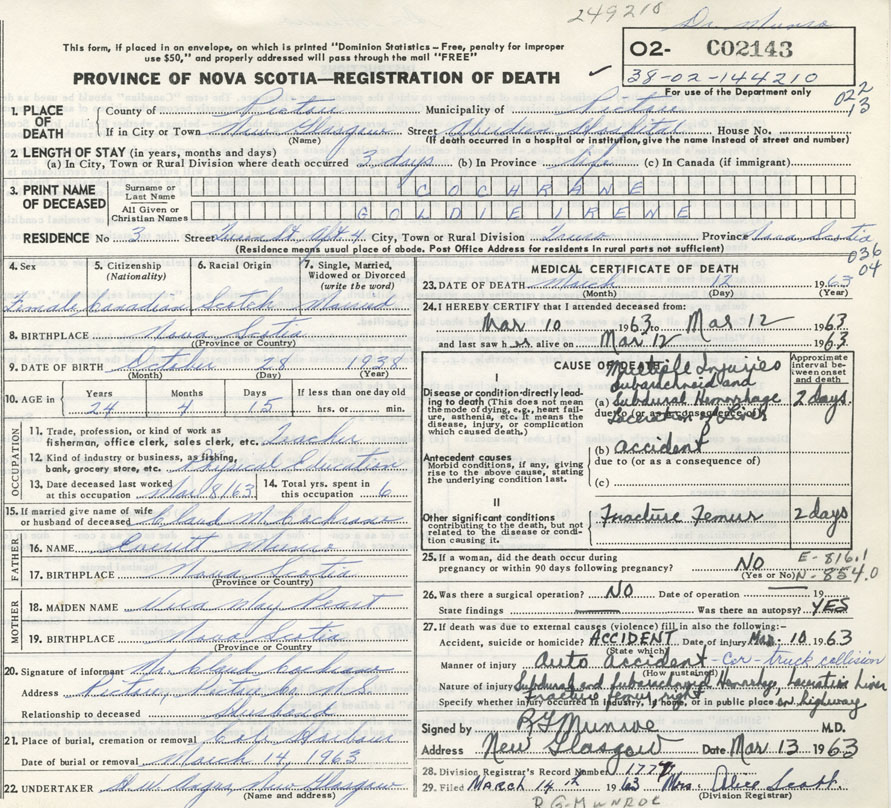 249210
Dr. Munro
This form, if placed in an envelope, on which is printed "Dominion Statistics – Free, penalty for improper
use $50," and properly addressed will pass through the mail "FREE"
02- C02143
38-02-144210
For use of the Department only
PROVINCE OF NOVA SCOTIA—REGISTRATION OF DEATH
022
13
1. PLACE OF DEATH County of Pictou Municipality of Pictou
If in City or Town New Glasgow Street Aberdeen Hospital House No.
(Name) (If death occurred in a hospital or institution, give the name instead of street and number)
2. LENGTH OF STAY (in years, months and days)
(a) In City, Town or Rural Division where death occurred 3 days (b) In Province life (c) In Canada (if immigrant)
3. PRINT NAME OF DECEASED Surname or Last Name COCHRANE
All Given or Christian Names GOLDIE IRENE
RESIDENCE No 3 Street Apt 4 City, Town or Rural Division Truro Province Nova Scotia
(Residence means usual place of abode. Post Office Address for residents in rural parts not sufficient)
036
04
4. Sex 5. Citizenship (Nationality) 6. Racial Origin 7. Single, Married, Widowed or Divorced (write the word)
Female Canadian Scotch Married
8. BIRTHPLACE Nova Scotia
(Province or Country)
9. DATE OF BIRTH October 28 1938
(Month) (Day) (Year)
10. AGE in Years Months Days If less than one day old
24 4 15 hrs. or min.
OCCUPATION
11. Trade, profession, or kind of work as
fisherman, office clerk, sales clerk, etc. Teacher
12. Kind of industry or business, as fishing,
bank, grocery store, etc. Physical Education
13. Date deceased last worked at this occupation Mar 8/63 14. Total yrs. spent in this occupation 6
15. If married give name of wife
or husband of deceased Claud M. Cochrane
FATHER
16. NAME Munro
17. BIRTHPLACE Nova Scotia
(Province or Country)
MOTHER
18. MAIDEN NAME May
19. BIRTHPLACE Nova Scotia
(Province or Country)
20. Signature of informant Mr Claud Cochrane
Address Pictou, Pictou Co N.S.
Relationship to deceased Husband
21. Place of burial, cremation or removal Harbour
Date of burial or removal March 14, 1963
22. UNDERTAKER H.W. Angus, New Glasgow
(Name and address)
MEDICAL CERTIFICATE OF DEATH
23. DATE OF DEATH March 12 1963
(Month) (Day) (Year)
24. I HEREBY CERTIFY that I attended deceased from:
Mar 10 1963 to Mar 12 1963
and last saw her alive on Mar 12 1963
CAUSE OF DEATH Approximate interval between onset and death
I
Multiple Injuries
Disease or condition directly leading to death (This does not mean the mode of dying, e.g., heart failure, asthenia, etc. It means the disease, injury, or complication which caused death.)
Subarachnoid and
(a) Subdural Hemorrhage 2 days
due to (or as a consequence of)
Laceration of Liver
Antecedent causes
Morbid conditions, if any, giving rise to the above cause, stating the underlying condition last.
(b) accident
due to (or as a consequence of)
(c)
II
Other significant conditions
contributing to the death, but not related to the disease or condition causing it.
Fracture Femur 2 days
25. If a woman, did the death occur during
pregnancy or within 90 days following pregnancy? NO
(Yes or No)
E-816.1
N-854.0
26. Was there a surgical operation? NO Date of operation 19
State findings Was there an autopsy? YES
27. If death was due to external causes (violence) fill in also the following:
Accident, suicide or homicide? ACCIDENT Date of injury Mar 10 1963
(State which)
Manner of injury Auto accident - Car - truck collision
(How sustained)
Nature of injury Subdural and subarachnoid Hemorrhage, Laceration Liver
Fracture femur right
Specify whether injury occurred in industry, in home, or in public place on highway
Signed by R G Munroe M.D.
Address New Glasgow Date Mar 13 1963
28. Division Registrar's Record Number 1777
29. Filed MARCH 14 1963 Mrs. Alice
(Division Registrar)
R G. MUNROE